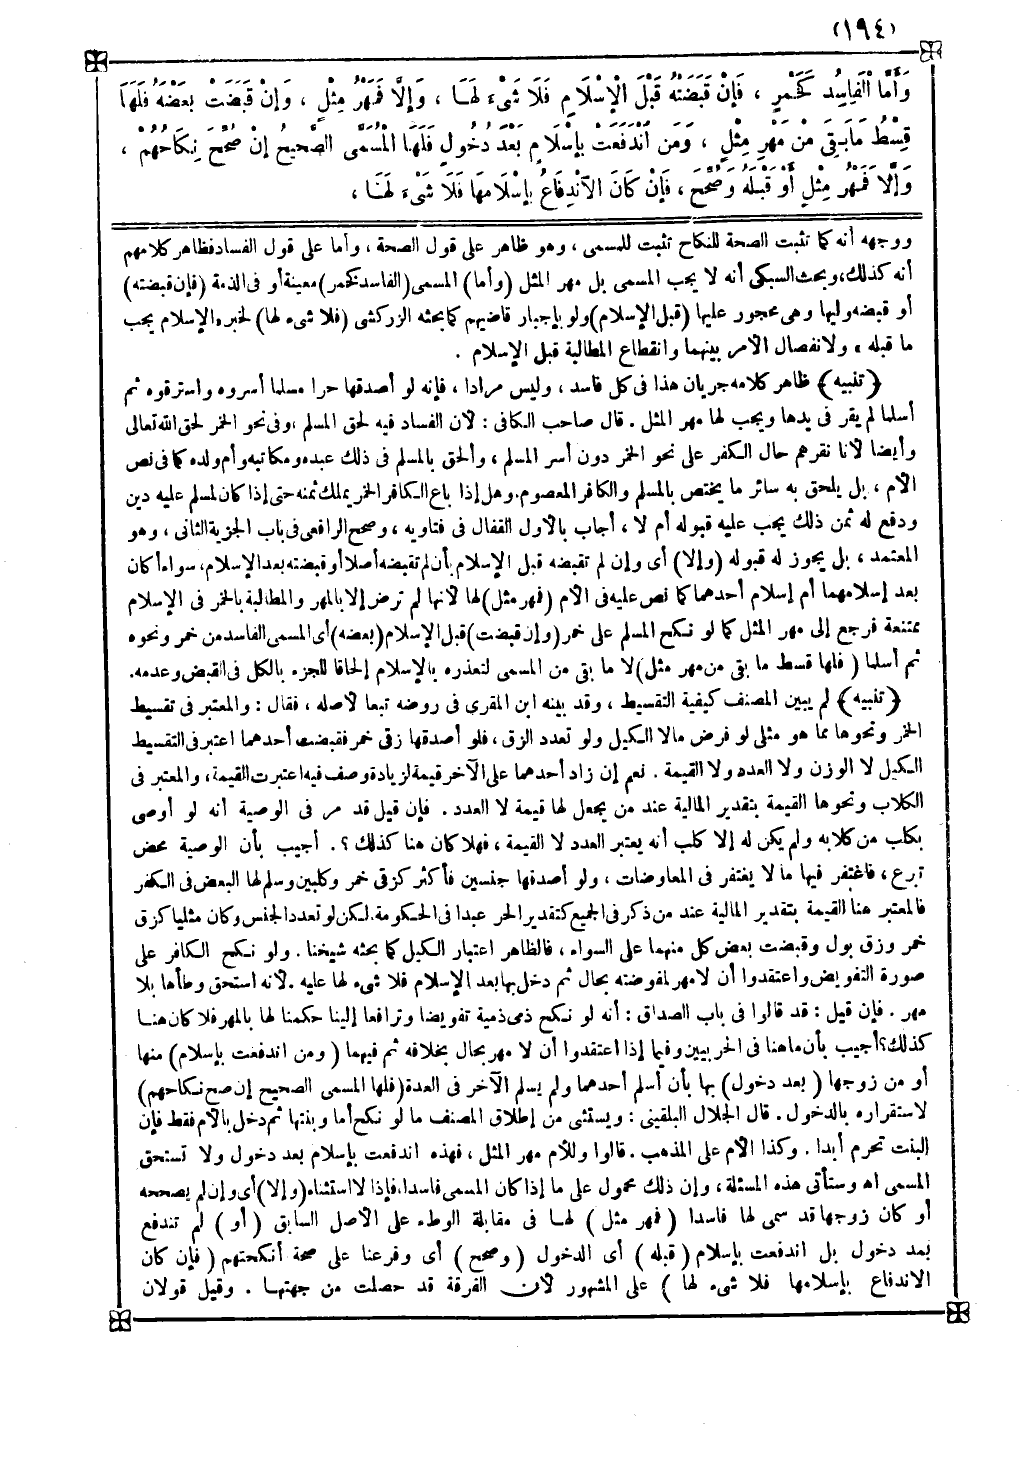 (١٩٤)
وَأَمَّا الْفَاسِدُ كَخَمْرٍ ، فَإِنْ قَبَضَتْهُ قَبْلَ الْإِسْلَامِ فَلَا شَيْءَ لَهَا ، وَإِلَّا فَمَهْرُ مِثْلٍ ، وَإِنْ قَبَضَتْ بَعْضَهُ فَلَهَا
قِسْطُ مَا بَقِيَ مِنْ مَهْرِ مِثْلٍ ، وَمَنِ انْدَفَعَتْ بِإِسْلَامٍ بَعْدَ دُخُولٍ فَلَهَا الْمُسَمَّى الصَّحِيحُ إِنْ صُحِّحَ نِكَاحُهُمْ ،
وَإِلَّا فَمَهْرُ مِثْلٍ أَوْ قَبْلَهُ وَصُحِّحَ ، فَإِنْ كَانَ الِانْدِفَاعُ بِإِسْلَامِهَا فَلَا شَيْءَ لَهَا ،
ووجهه أنه كما تثبت الصحة للنكاح تثبت للمسمى ، وهو ظاهر على قول الصحة ، وأما على قول الفساد فظاهر كلامهم
أنه كذلك، وبحث السبكى أنه لا يجب المسمى بل مهر المثل (وأما) المسمى (الفاسد كخمر) معينة أو فى الذمة (فإن قبضته)
أو قبضه وليها وهى محجور عليها (قبل الإسلام) ولو بإجبار قاضيهم كما بحثه الزركشى (فلا شىء لها) لخبر ه الإسلام يجب
ما قبله ، ولانفصال الأمر بينهما وانقطاع المطالبة قبل الإسلام .
﴿ تنبيه ﴾ ظاهر كلامه جريان هذا فى كل فاسد ، وليس مرادا ، فإنه لو أصدقها حرا مسلما أسروه واسترقوه ثم
أسلما لم يقر فى يدها ويجب لها مهر المثل . قال صاحب الكافى : لأن الفساد فيه لحق المسلم ، وفى نحو الخمر لحق الله تعالى
وأيضا لأنا نقرهم حال الكفر على نحو الخمر دون أسر المسلم ، وألحق بالمسلم فى ذلك عبده ومكاتبه وأم ولده كما فى نص
الأم ، بل يلحق به سائر ما يختص بالمسلم والكافر المعصوم. وهل إذا باع الكافر الخمر يملك ثمنه حتى إذا كان لمسلم عليه دين
ودفع له ثمن ذلك يجب عليه قبوله أم لا ، أجاب بالأول القفال فى فتاويه ، وصحح الرافعى فى باب الجزية الثانى ، وهو
المعتمد ، بل يجوز له قبوله (وإلا) أى وإن لم تقبضه قبل الإسلام بأن لم تقبضه أصلا أو قبضته بعد الإسلام، سواء أكان
بعد إسلامهما أم إسلام أحدهما كما نص عليه فى الأم (فمهر مثل) لها لأنها لم ترض إلا بالمهر والمطالبة بالخمر فى الإسلام
ممتنعة فرجع إلى مهر المثل كما لو نكح المسلم على خمر (وإن قبضت) قبل الإسلام (بعضه) أى المسمى الفاسد من خمر ونحوه
ثم أسلما ( فلها قسط ما بقى من مهر مثل) لا ما بقى من المسمى لتعذره بالإسلام إلحاقا للجزء بالكل فى القبض وعدمه.
﴿ تنبيه ﴾ لم يبين المصنف كيفية التقسيط ، وقد بينه ابن المقرى فى روضه تبعا لأصله ، فقال : والمعتبر فى تقسيط
الخمر ونحوها مما هو مثلى لو فرض مالا الكيل ولو تعدد الزق، فلو أصدقها زقى خمر فقبضت أحدهما اعتبر فى التقسيط
الكيل لا الوزن ولا العدد ولا القيمة . نعم إن زاد أحدهما على الآخر قيمة لزيادة وصف فيه اعتبرت القيمة، والمعتبر فى
الكلاب ونحوها القيمة بتقدير المالية عند من يجعل لها قيمة لا العدد . فإن قيل قد مر فى الوصية أنه لو أوصى
بكلب من كلابه ولم يكن له إلا كلب أنه يعتبر العدد لا القيمة ، فهلا كان هنا كذلك ؟. أجيب بأن الوصية محض
تبرع ، فاغتفر فيها ما لا يغتفر فى المعاوضات ، ولو أصدقها جنسين فأكثر كزقى خمر وكلبين وسلم لها البعض فى الكفر
فالمعتبر هنا القيمة بتقدير المالية عند من ذكر فى الجميع كتقدير الحر عبدا فى الحكومة. لكن لو تعدد الجنس وكان مثليا كزق
خمر وزق بول وقبضت بعض كل منهما على السواء ، فالظاهر اعتبار الكيل كما بحثه شيخنا . ولو نكح الكافر على
صورة التفويض واعتقدوا أن لا مهر لمفوضته بحال ثم دخل بها بعد الإسلام فلا شىء لها عليه . لأنه استحق وطأها بلا
مهر . فإن قيل : قد قالوا فى باب الصداق : أنه لو نكح ذمى ذمية تفويضا وترافعا إلينا حكمنا لها بالمهر فلا كان هنا
كذلك؟ أجيب بأن ما هنا فى الحربيين وفيما إذا اعتقدوا أن لا مهر بحال بخلافه ثم فيهما ( ومن اندفعت بإسلام) منها
أو من زوجها ( بعد دخول) بها بأن أسلم أحدهما ولم يسلم الآخر فى العدة (فلها المسمى الصحيح إن صح نكاحهم)
لاستقراره بالدخول . قال الجلال البلقينى : ويستثنى من إطلاق المصنف ما لو نكح أما وبنتها ثم دخل بالأم فقط فإن
البنت تحرم أبدا . وكذا الأم على المذهب . قالوا وللأم مهر المثل ، فهذه اندفعت بإسلام بعد دخول ولا تستحق
المسمى اه وستأتى هذه المسئلة ، وإن ذلك محمول على ما إذا كان المسمى فاسدا، فإذا لا استثناء (وإلا) أى وإن لم يصححه
أو كان زوجها قد سمى لها فاسدا ( فمهر مثل ) لها فى مقابلة الوطء على الأصل السابق ( أو ) لم تندفع
بعد دخول بل اندفعت بإسلام ( قبله ) أى الدخول ( وصحح ) أى وفرعنا على صحة أنكحتهم ( فإن كان
الاندفاع بإسلامها فلا شىء لها ) على المشهور لأن الفرقة قد حصلت من جهتها . وقيل قولان